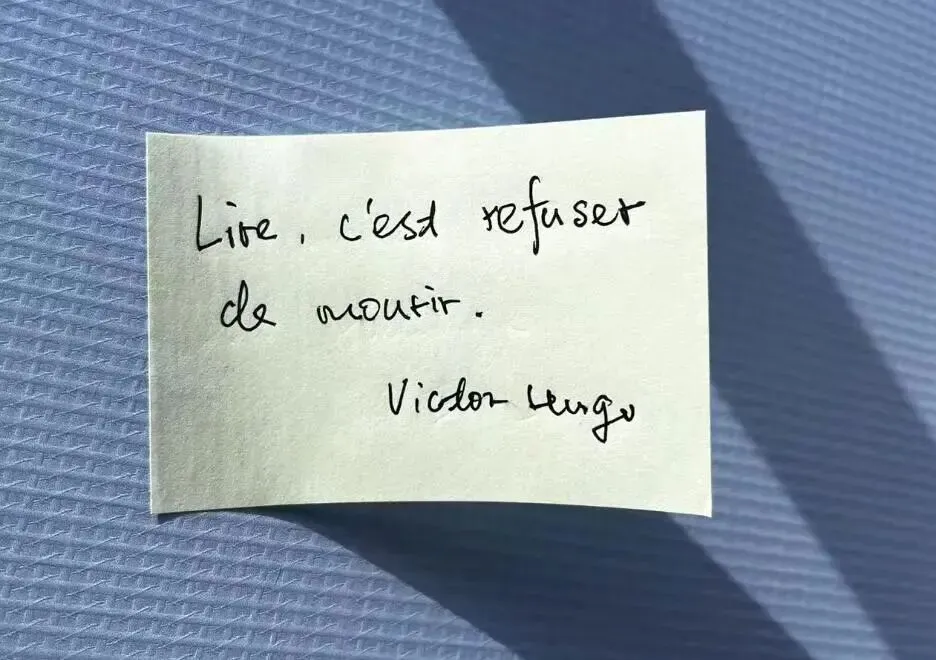 Lire, c'est refuser
de mourir.
Victor Hugo